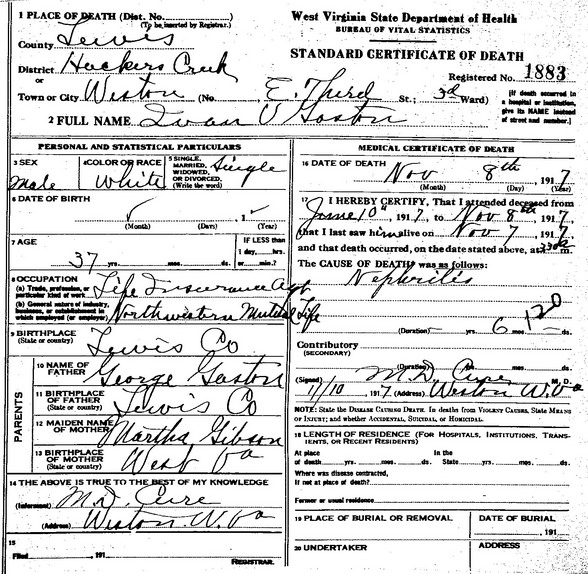 1 PLACE OF DEATH (Dist. No.
(To be inserted by Registrar.)
County Lewis
District Hackers Creek
or
Town or City Weston (No. E. Third St.; 3rd Ward)
2 FULL NAME Ivan V Gaston
West Virginia State Department of Health
BUREAU OF VITAL STATISTICS
STANDARD CERTIFICATE OF DEATH
Registered No. 1883
[If death occurred in a hospital or institution, give its NAME instead of street and number.]
PERSONAL AND STATISTICAL PARTICULARS
3 SEX Male
4 COLOR OR RACE White
5 SINGLE, MARRIED, WIDOWED, OR DIVORCED, (Write the word) Single
6 DATE OF BIRTH
(Month) (Day) (Year)
7 AGE 37 yrs. mos. ds.
IF LESS than 1 day, hrs. or min.?
8 OCCUPATION
(a) Trade, profession, or particular kind of work Life Insurance Agt
(b) General nature of industry, business, or establishment in which employed (or employer) Northwestern Mutual Life
9 BIRTHPLACE (State or country) Lewis Co
PARENTS
10 NAME OF FATHER George Gaston
11 BIRTHPLACE OF FATHER (State or country) Lewis Co
12 MAIDEN NAME OF MOTHER Martha Gibson
13 BIRTHPLACE OF MOTHER (State or country) West Va
14 THE ABOVE IS TRUE TO THE BEST OF MY KNOWLEDGE
(Informant) M.D. Cure
(Address) Weston W. Va
15
Filed , 191
REGISTRAR.
MEDICAL CERTIFICATE OF DEATH
16 DATE OF DEATH Nov 8th, 1917
(Month) (Day) (Year)
17 I HEREBY CERTIFY, That I attended deceased from
June 10th, 1917, to Nov 8th, 1917
that I last saw him alive on Nov 7, 1917
and that death occurred, on the date stated above, at m.
The CAUSE OF DEATH was as follows:
Nephritis
120
(Duration) yrs. 6 mos. ds.
Contributory
(SECONDARY)
(Duration) yrs. mos. ds.
(Signed) M.D. Cure M. D.
11/10 1917 (Address) Weston W. Va
NOTE: State the DISEASE CAUSING DEATH. In deaths from VIOLENT CAUSES, State MEANS OF INJURY; and whether ACCIDENTAL, SUICIDAL, or HOMICIDAL.
18 LENGTH OF RESIDENCE (FOR HOSPITALS, INSTITUTIONS, TRANSIENTS, OR RECENT RESIDENTS)
At place of death yrs. mos. ds. In the State yrs. mos. ds.
Where was disease contracted, if not at place of death?
Former or usual residence
19 PLACE OF BURIAL OR REMOVAL
DATE OF BURIAL
, 191
20 UNDERTAKER
ADDRESS